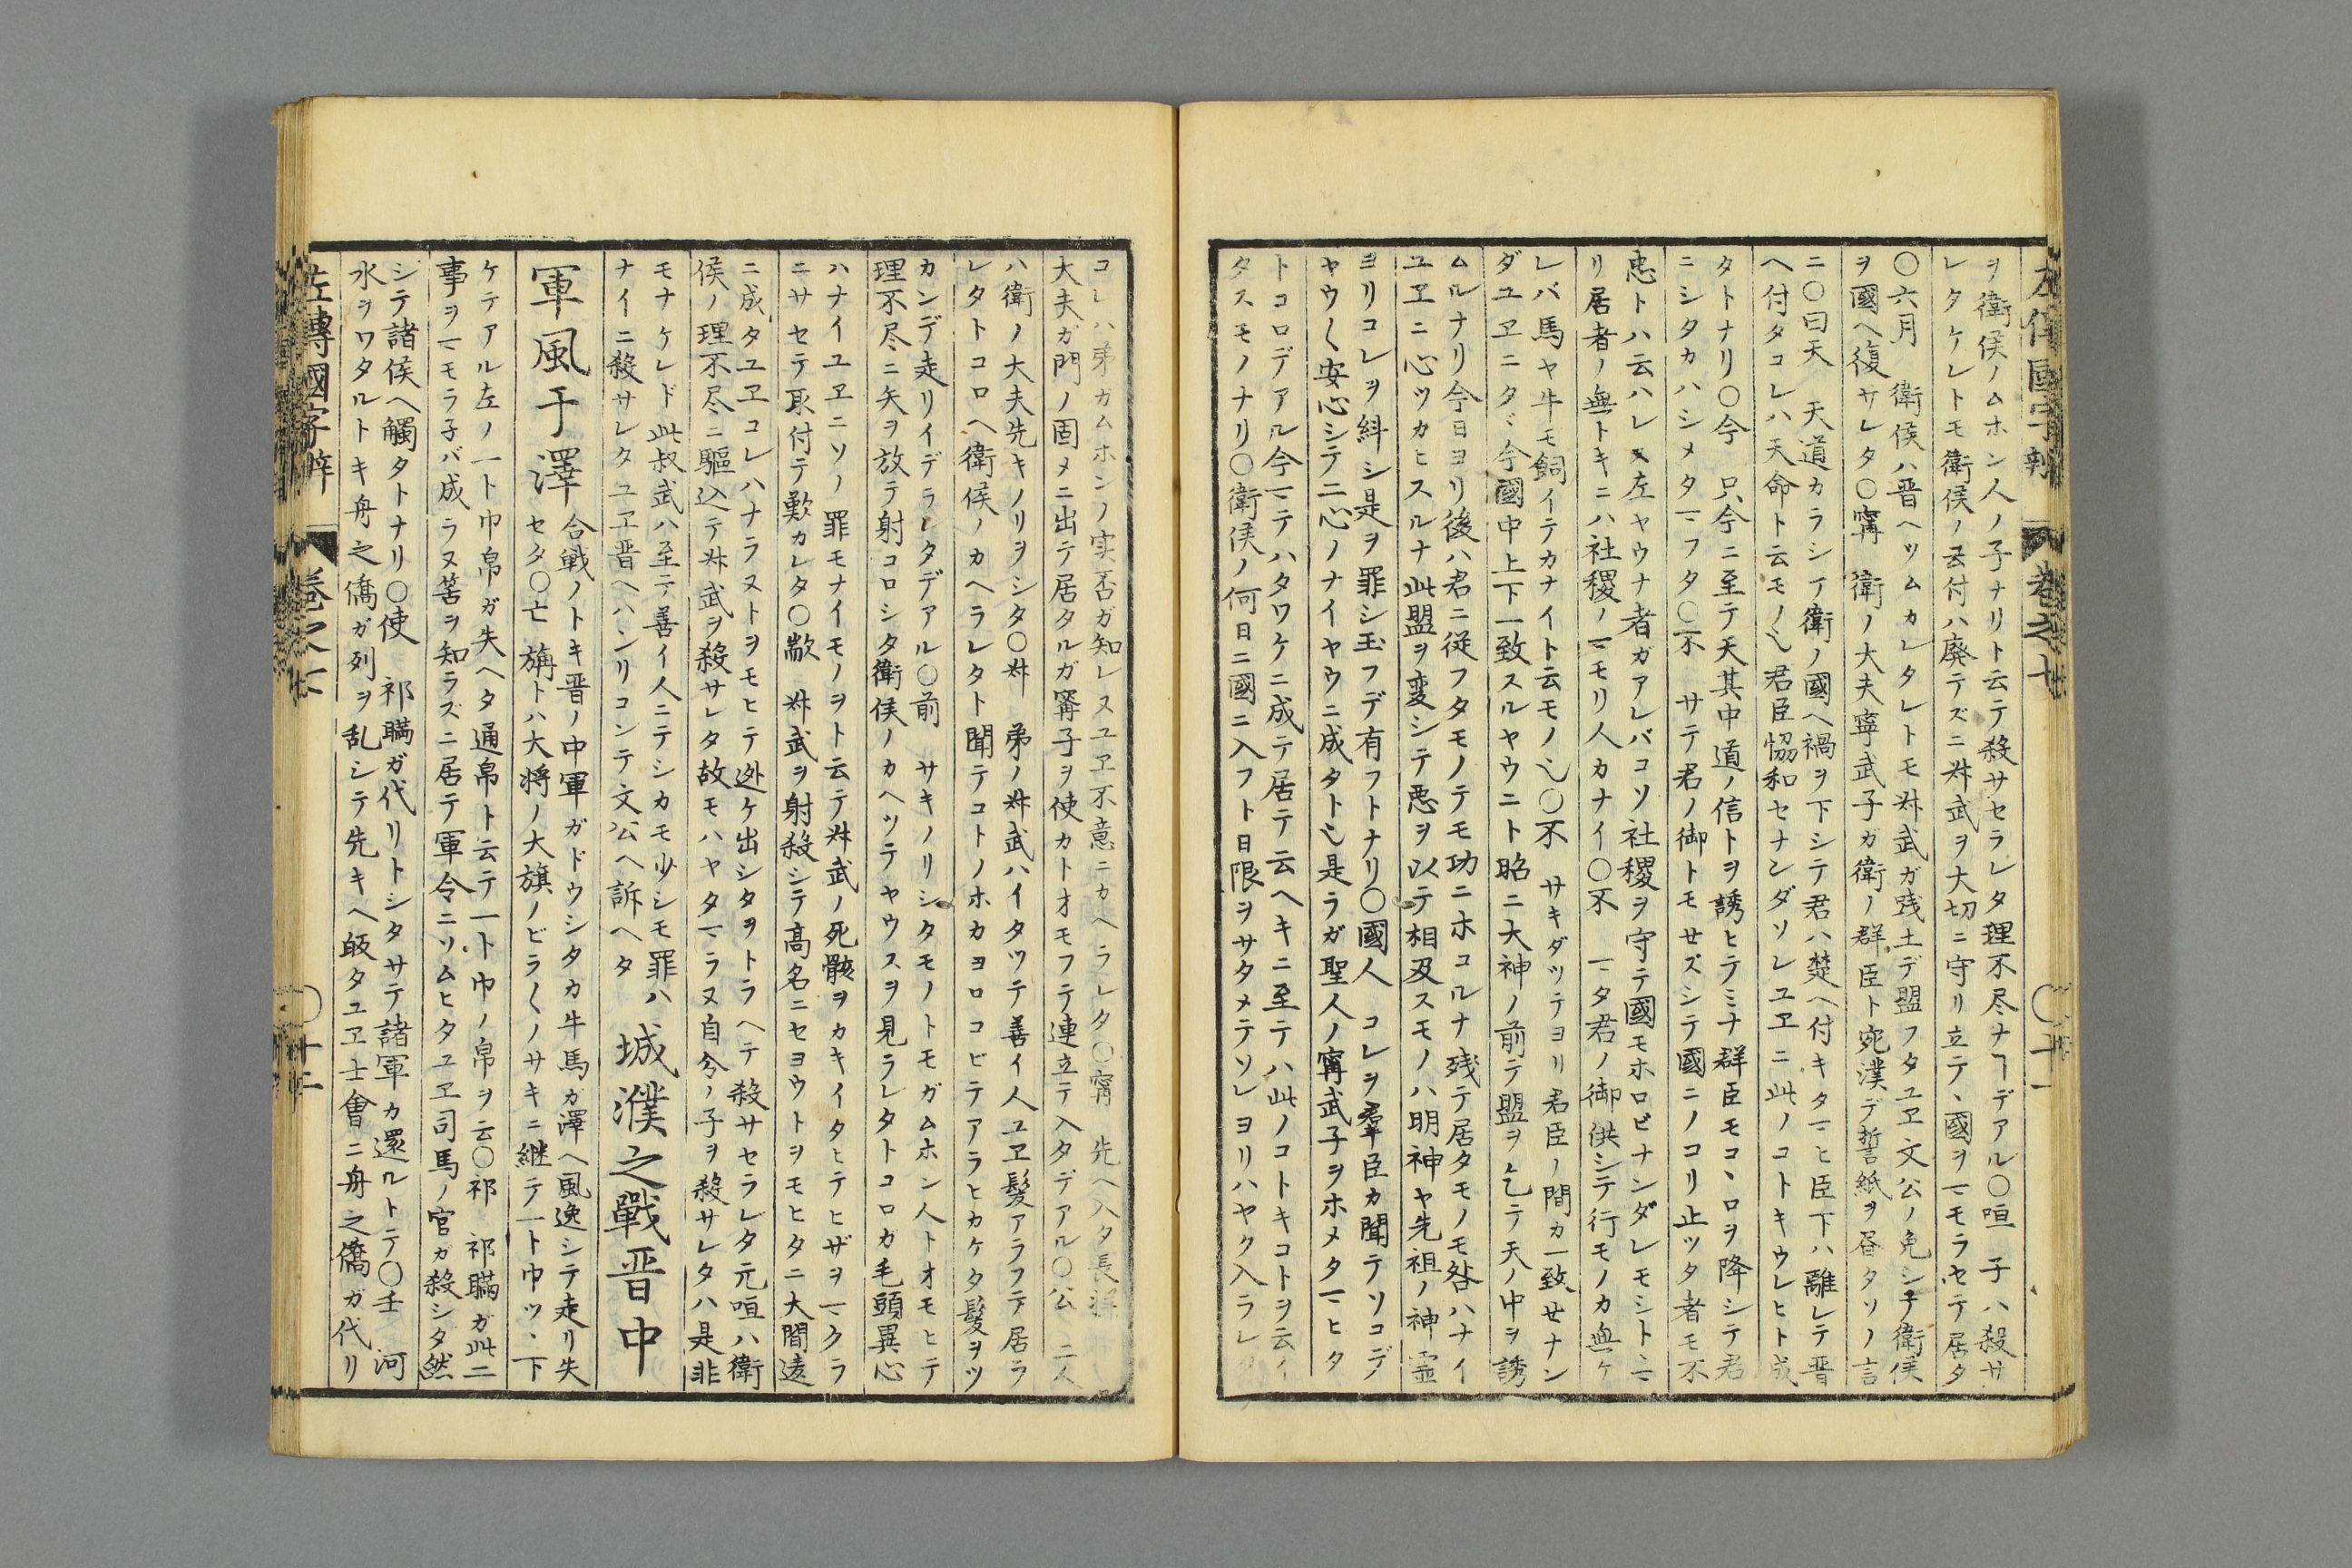 左傳國字辯 卷之七 〇十一
ヲ衛侯ノムホン人ノ子ナリト云テ殺サセラレタ理不尽ナヿデアル〇咺 子ハ殺サ
レタケレトモ衛侯ノ云付ハ廃テズニ叔武ヲ大切ニ守リ立テヽ國ヲマモラセテ居タ
〇六月 衛侯ハ晋ヘツムカレタレトモ叔武ガ践土デ盟フタユヱ文公ノ免シテ衛侯
ヲ國ヘ復サレタ〇甯 衛ノ大夫寧武子カ衛ノ群臣ト宛濮デ誓紙ヲ昏タソノ言
ニ〇曰天 天道カラシテ衛ノ國ヘ禍ヲ下シテ君ハ楚ヘ付キタマヒ臣下ハ離レテ晋
ヘ付タコレハ天命ト云モノ也君臣恊和セナンダソレユヱニ此ノコトキウレヒト成
タトナリ〇今 只今ニ至テ天其中道ノ信トヲ誘ヒテミナ群臣モコヽロヲ降シテ君
ニシタカハシメタマフタ〇不 サテ君ノ御トモセズシテ國ニノコリ止ツタ者モ不
忠トハ云ハレヌ左ヤウナ者ガアレバコソ社稷ヲ守テ國モホロビナンダレモシトニマ
リ居者ノ無トキニハ社稷ノマモリ人カナイ〇不 マタ君ノ御供シテ行モノカ無ケ
レバ馬ヤ牛モ飼イテカナイト云モノ也〇不 サキダツテヨリ君臣ノ間カ一致セナン
ダユヱニタヾ今國中上下一致スルヤウニト昭ニ大神ノ前デ盟ヲ乞テ天ノ中ヲ誘
ムルナリ今日ヨリ後ハ君ニ従フタモノテモ功ニホコルナ残テ居タモノモ咎ハナイ
ユヱニ心ツカヒスルナ此盟ヲ変シテ悪ヲ以テ相及スモノハ明神ヤ先祖ノ神霊
ヨリコレヲ糾シ是ヲ罪シ玉フデ有フトナリ〇國人 コレヲ羣臣カ聞テソコデ
ヤウ〱安心シテ二心ノナイヤウニ成タト也是ラガ聖人ノ甯武子ヲホメタマヒタ
トコロデアル今マテハタワケニ成テ居テ云ヘキニ至テハ此ノコトキコトヲ云イ
タスモノナリ〇衛侯ノ何日ニ國ニ入フト日限ヲサタメテソレヨリハヤク入ラレ
コレハ弟ガムホンノ実否ガ知レヌユヱ不意ニカヘラレタ〇甯 先ヘ入タ長牂
大夫ガ門ノ固メニ出テ居タルガ甯子ヲ使カトオモフテ連立テ入タデアル〇公 二人
ハ衛ノ大夫先キノリヲシタ〇叔 弟ノ叔武ハイタツテ善イ人ユヱ髪アラフテ居ラ
レタトコロヘ衛侯ノカヘラレタト聞テコトノホカヨロコビテアラヒカケタ髪ヲツ
カンデ走リイデラレタデアル〇前 サキノリシタモノトモガムホン人トオモヒテ
理不尽ニ矢ヲ放テ射コロシタ衛侯ノカヘツテヤウスヲ見ラレタトコロガ毛頭異心
ハナイユヱニソノ罪モナイモノヲト云テ叔武ノ死骸ヲカキイタヒテヒザヲマクラ
ニサセテ取付テ歎カレタ〇歂 叔武ヲ射殺シテ高名ニセヨウトヲモヒタニ大間遠
ニ成タユヱコレハナラヌトヲモヒテ迯ケ出シタヲトラヘテ殺サセラレタ元咺ハ衛
侯ノ理不尽ニ驅込テ叔武ヲ殺サレタ故モハヤタマラヌ自分ノ子ヲ殺サレタハ是非
モナケレド此叔武ハ至テ善イ人ニテシカモ少シモ罪ハ
ナイニ殺サレタユヱ晋ヘハシリコンテ文公ヘ訴ヘタ
城濮之戰晋中
軍風于澤
合戦ノトキ晋ノ中軍ガドウシタカ牛馬ガ澤ヘ風逸シテ走リ失
セタ〇亡 旃トハ大将ノ大旗ノビラ〱ノサキニ継テ一ト巾ツヽ下
ケテアル左ノ一ト巾帛ガ失ヘタ通帛ト云テ一ト巾ノ帛ヲ云〇祁 祁瞞ガ此二
事ヲマモラ子バ成ラヌ筈ヲ知ラズニ居テ軍令ニソムヒタユヱ司馬ノ官ガ殺シタ然
シテ諸侯ヘ觸タトナリ〇使 祁瞞ガ代リトシタサテ諸軍カ還ルトテ〇壬 河
水ヲワタルトキ舟之僑ガ列ヲ乱シテ先キヘ皈タユヱ士會ニ舟之僑ガ代リ
左傳國字辯 卷之七 〇十二